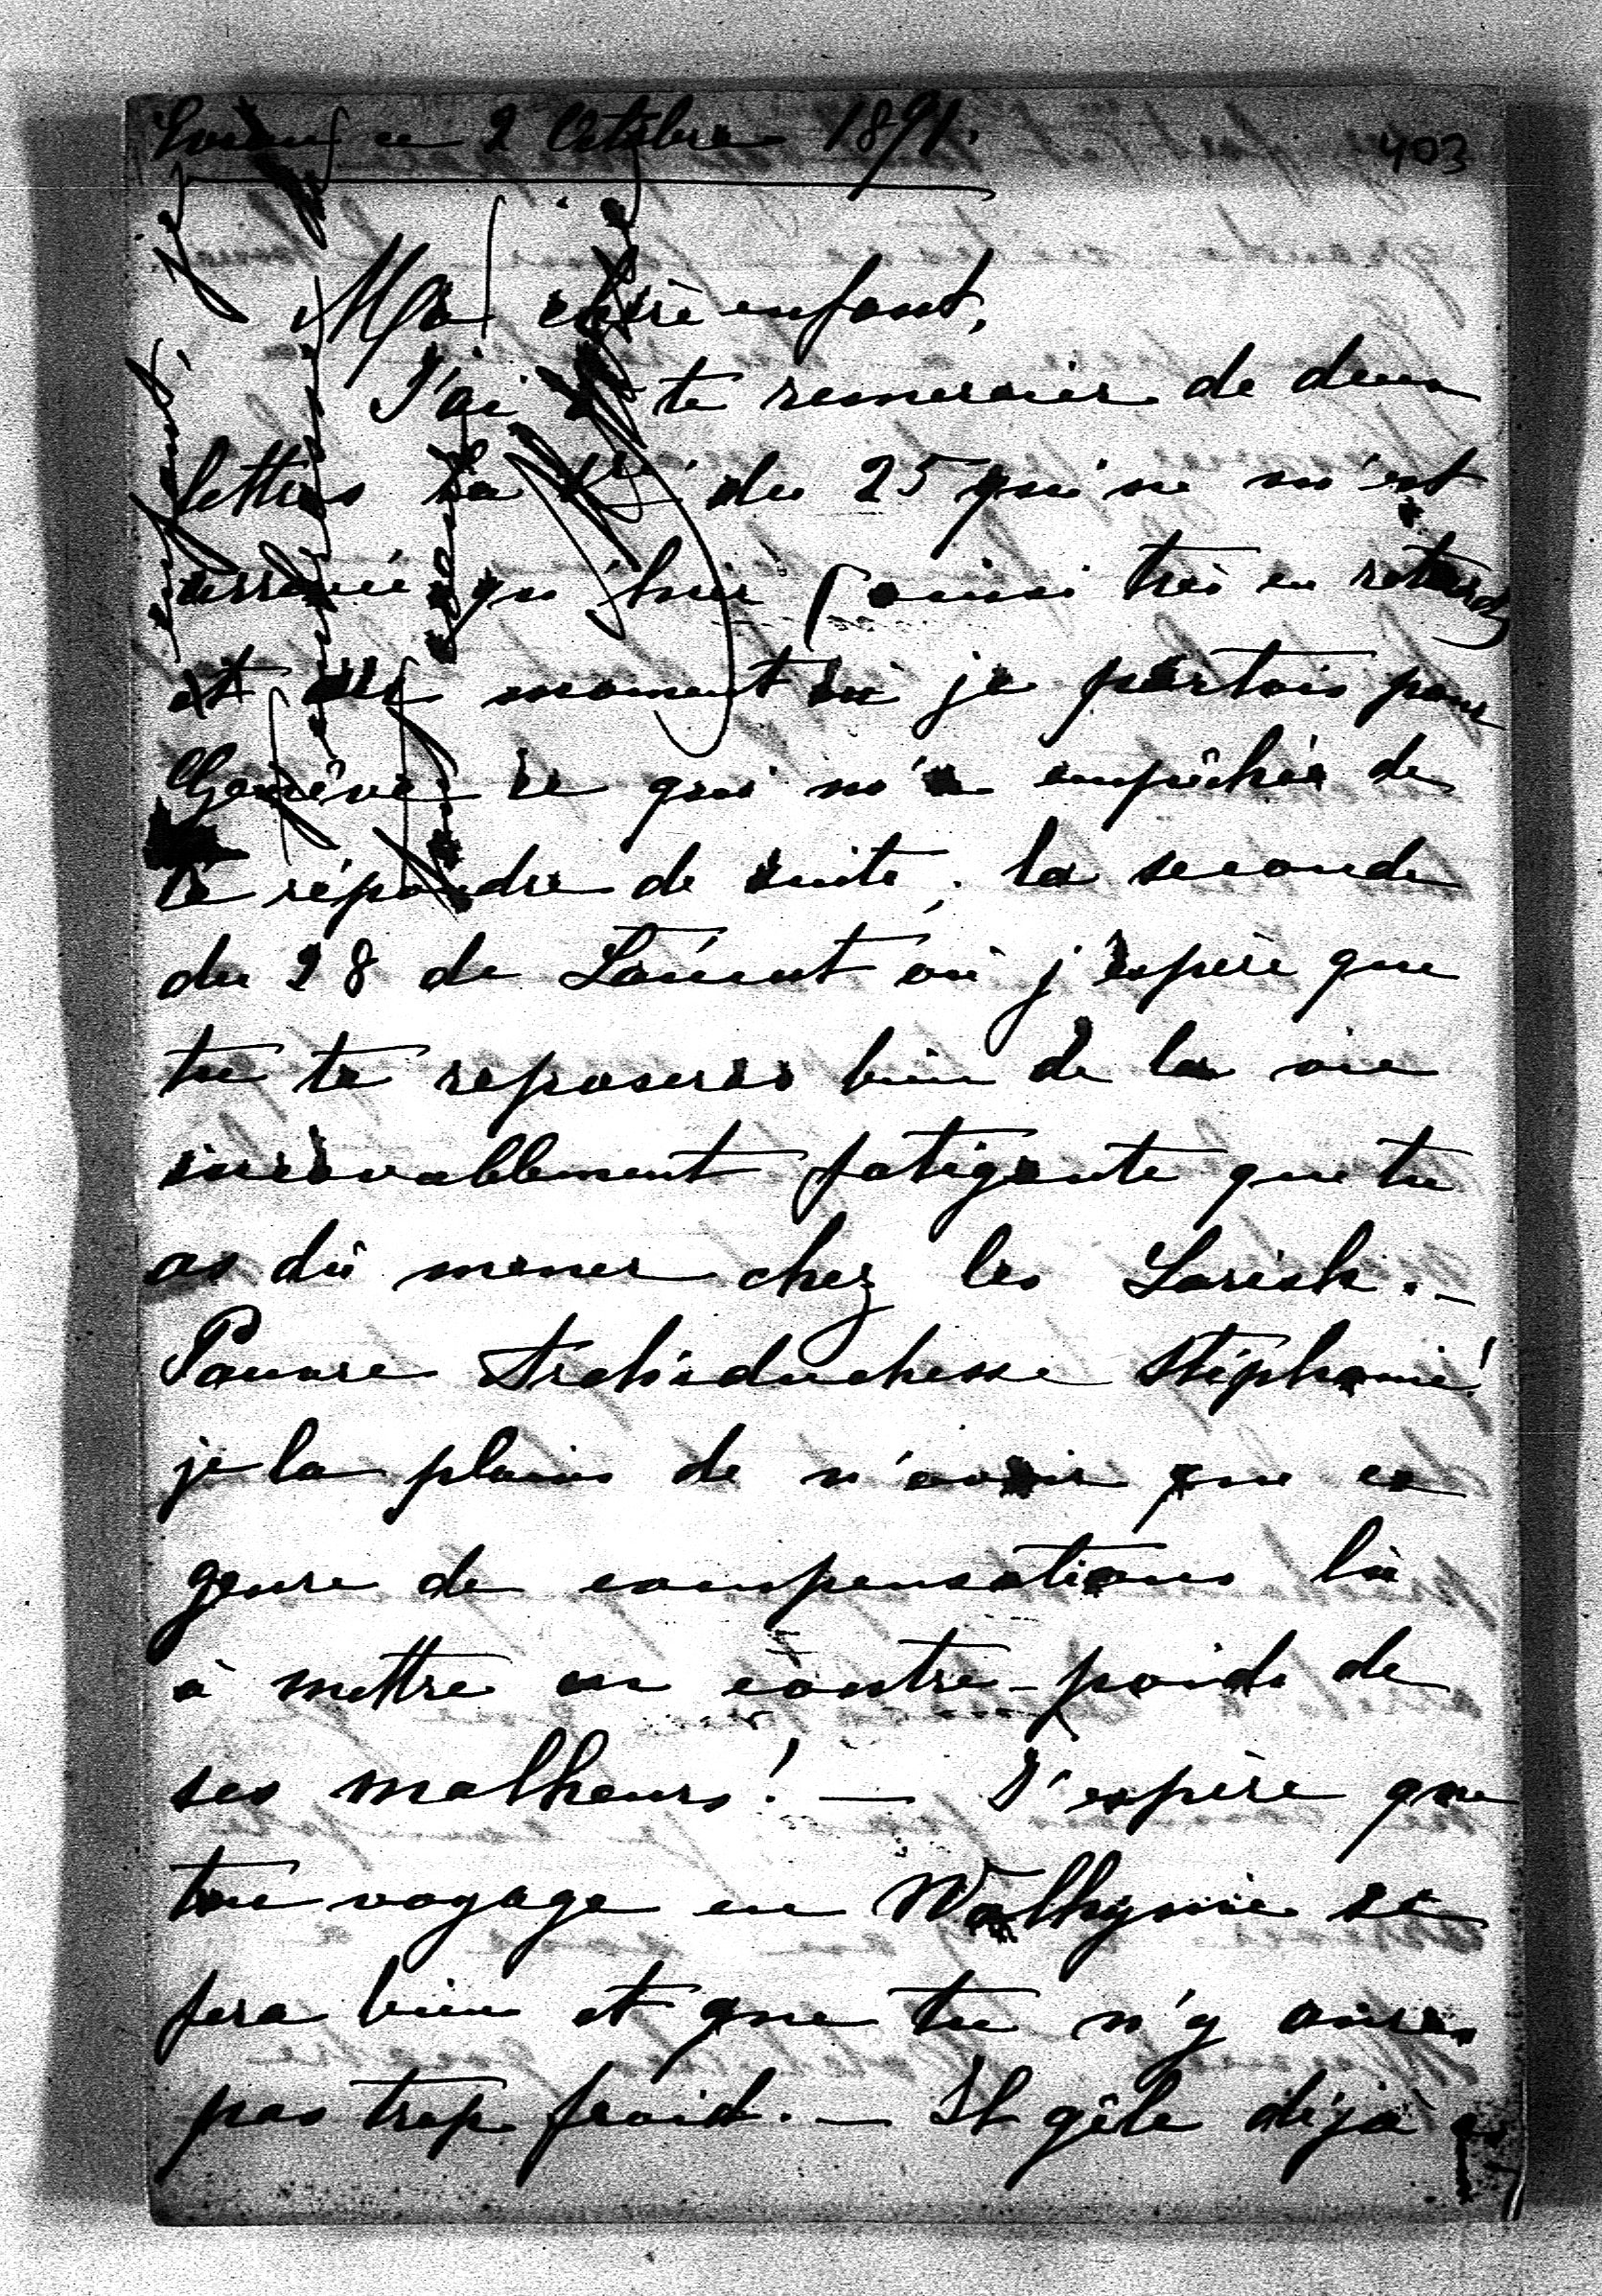 ce 2 Octobre 1891.
403
Ma chère enfant,
J'ai à te remercier de deux
lettres la 1re du 25 qui ne m'est
arrivée qu'hier (ainsi très en retard
et au moment où je partais pour
Genève ce qui m'a empêchée de
te répondre de suite, la seconde
du 28 de Łańcut où j'espère que
tu te reposeras bien de la vie
incroyablement fatigante que tu
as dû mener chez les Larish. _
Pauvre Archiduchesse Stéphanie!
je la plains de n'avoir que ce
genre de compensations là
à mettre en contre-poids de
ses malheurs! — J'espère que
ton voyage en Wolhynie se
fera bien et que tu n'y auras
pas trop froid. — Il gêle déjà